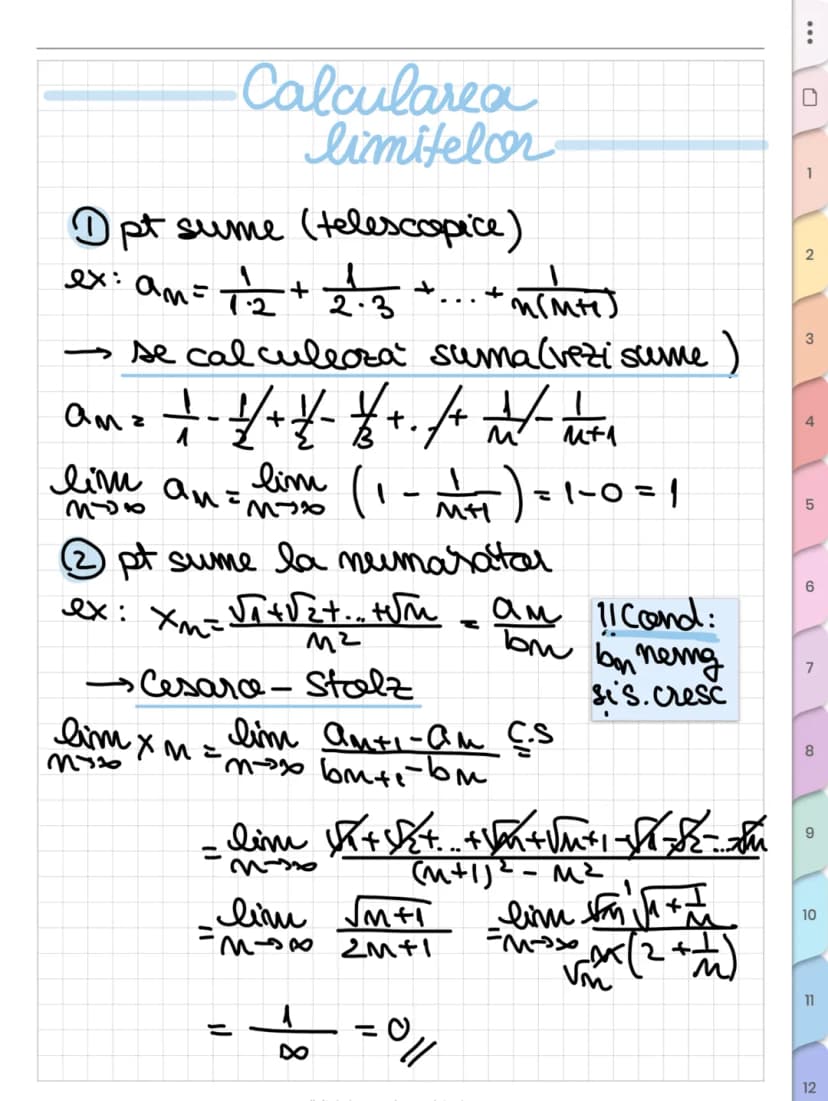 Calcularea
limitelor
① pt sume (telescopice)
ex: an = 1/(1·2) + 1/(2·3) + ... + 1/(n(n+1))
→ se calculeoză suma (vezi sume)
an = 1/1 - 1/2 + 1/2 - 1/3 + ... + 1/n - 1/(n+1)
lim n→∞ an = lim n→∞ (1 - 1/(n+1)) = 1-0 = 1
② pt sume la numărător
ex: xn = (√1+√2+...+√n)/n² = an/bn
!! Cond:
bn nemg
și s. cresc
→ Cesaro - Stolz
lim n→∞ xn = lim n→∞ (an+1 - an)/(bn+1 - bn) C.S =
= lim n→∞ (√1+√2+...+√n+√n+1-√1-√2-...-√n)/((n+1)² - n²)
= lim n→∞ √n+1/(2n+1) = lim n→∞ √n √1+1/n / (n(2+1/n)) 1 √n
= 1/∞ = 0
1
2
3
4
5
6
7
8
9
10
11
12